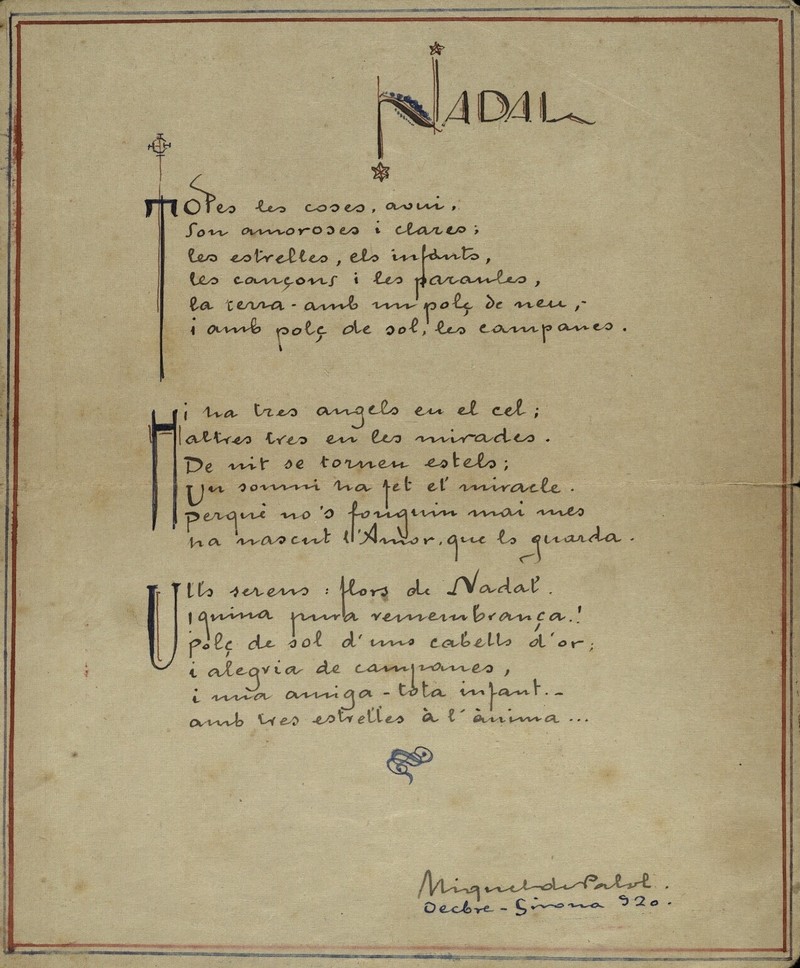 NADAL
Totes les coses, avui,
Son amoroses i clares;
les estrelles, els infants,
les cançons i les paraules,
la terra - amb un polç de neu, -
i amb polç de sol, les campanes.
Hi ha tres angels en el cel;
altres tres en les mirades.
De nit se tornen estels;
Un somni ha fet el miracle.
Perquè no 's fonguin mai mes
ha nascut l'Amor, que ls guarda.
Ulls serens: flors de Nadal.
I quina pura remembrança.!
Polç de sol d'uns cabells d'or;
i alegria de campanes,
i una amiga - tota infant. -
amb tres estrelles à l'ànima...
Miquel de Palol.
Decbre - Girona 920.